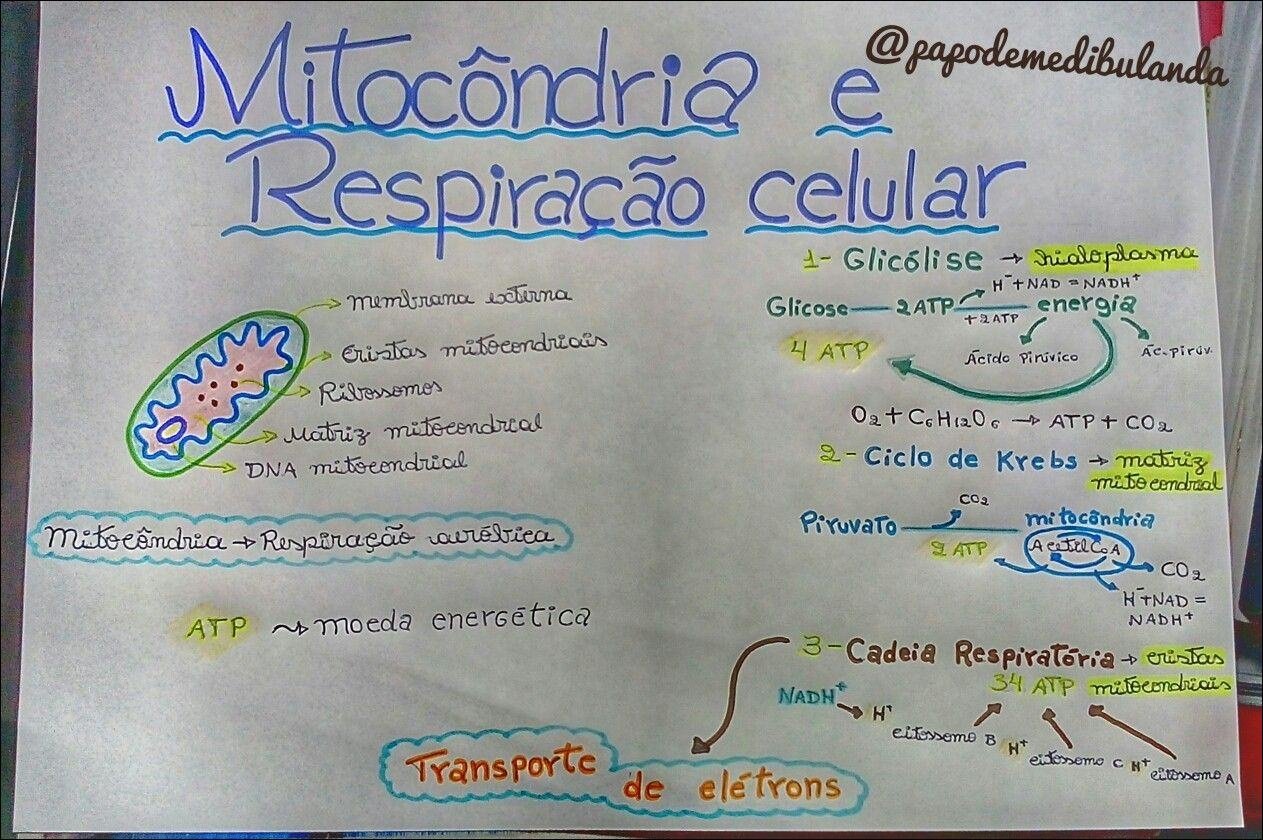 @papodemedibulanda
Mitocôndria e
Respiração celular
membrana externa
cristas mitocondriais
Ribossomos
Matriz mitocondrial
DNA mitocondrial
Mitocôndria → Respiração aeróbica
ATP ⤳ moeda energética
1- Glicólise → hialoplasma
H⁻+NAD = NADH⁺
Glicose — 2ATP — energia
+2ATP
4 ATP
Ácido Pirúvico
Ác. pirúv.
O₂ + C₆H₁₂O₆ → ATP + CO₂
2- Ciclo de Krebs → matriz
mitocondrial
CO₂
Piruvato mitocôndria
2 ATP
Acetil CoA
CO₂
H⁻+NAD =
NADH⁺
3- Cadeia Respiratória → cristas
34 ATP mitocondriais
NADH⁺
H⁺
citossomo B
H⁺
citossomo C
H⁺
citossomo A
Transporte
de elétrons